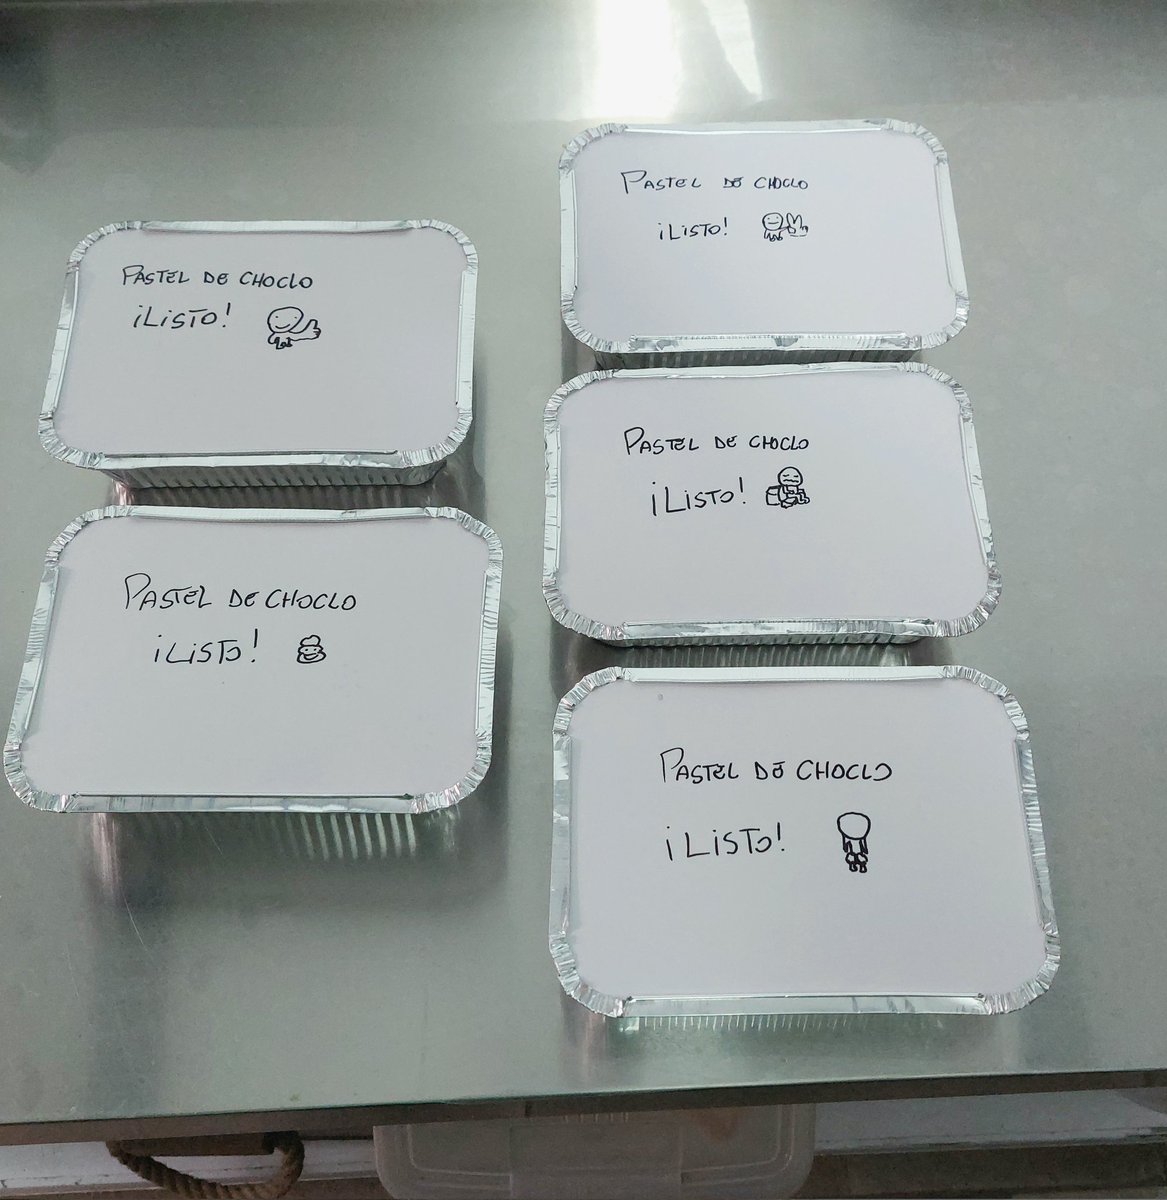 PASTEL DE CHOCLO
¡LISTO!
PASTEL DE CHOCLO
¡LISTO!
PASTEL DE CHOCLO
¡LISTO!
PASTEL DE CHOCLO
¡LISTO!
PASTEL DE CHOCLO
¡LISTO!